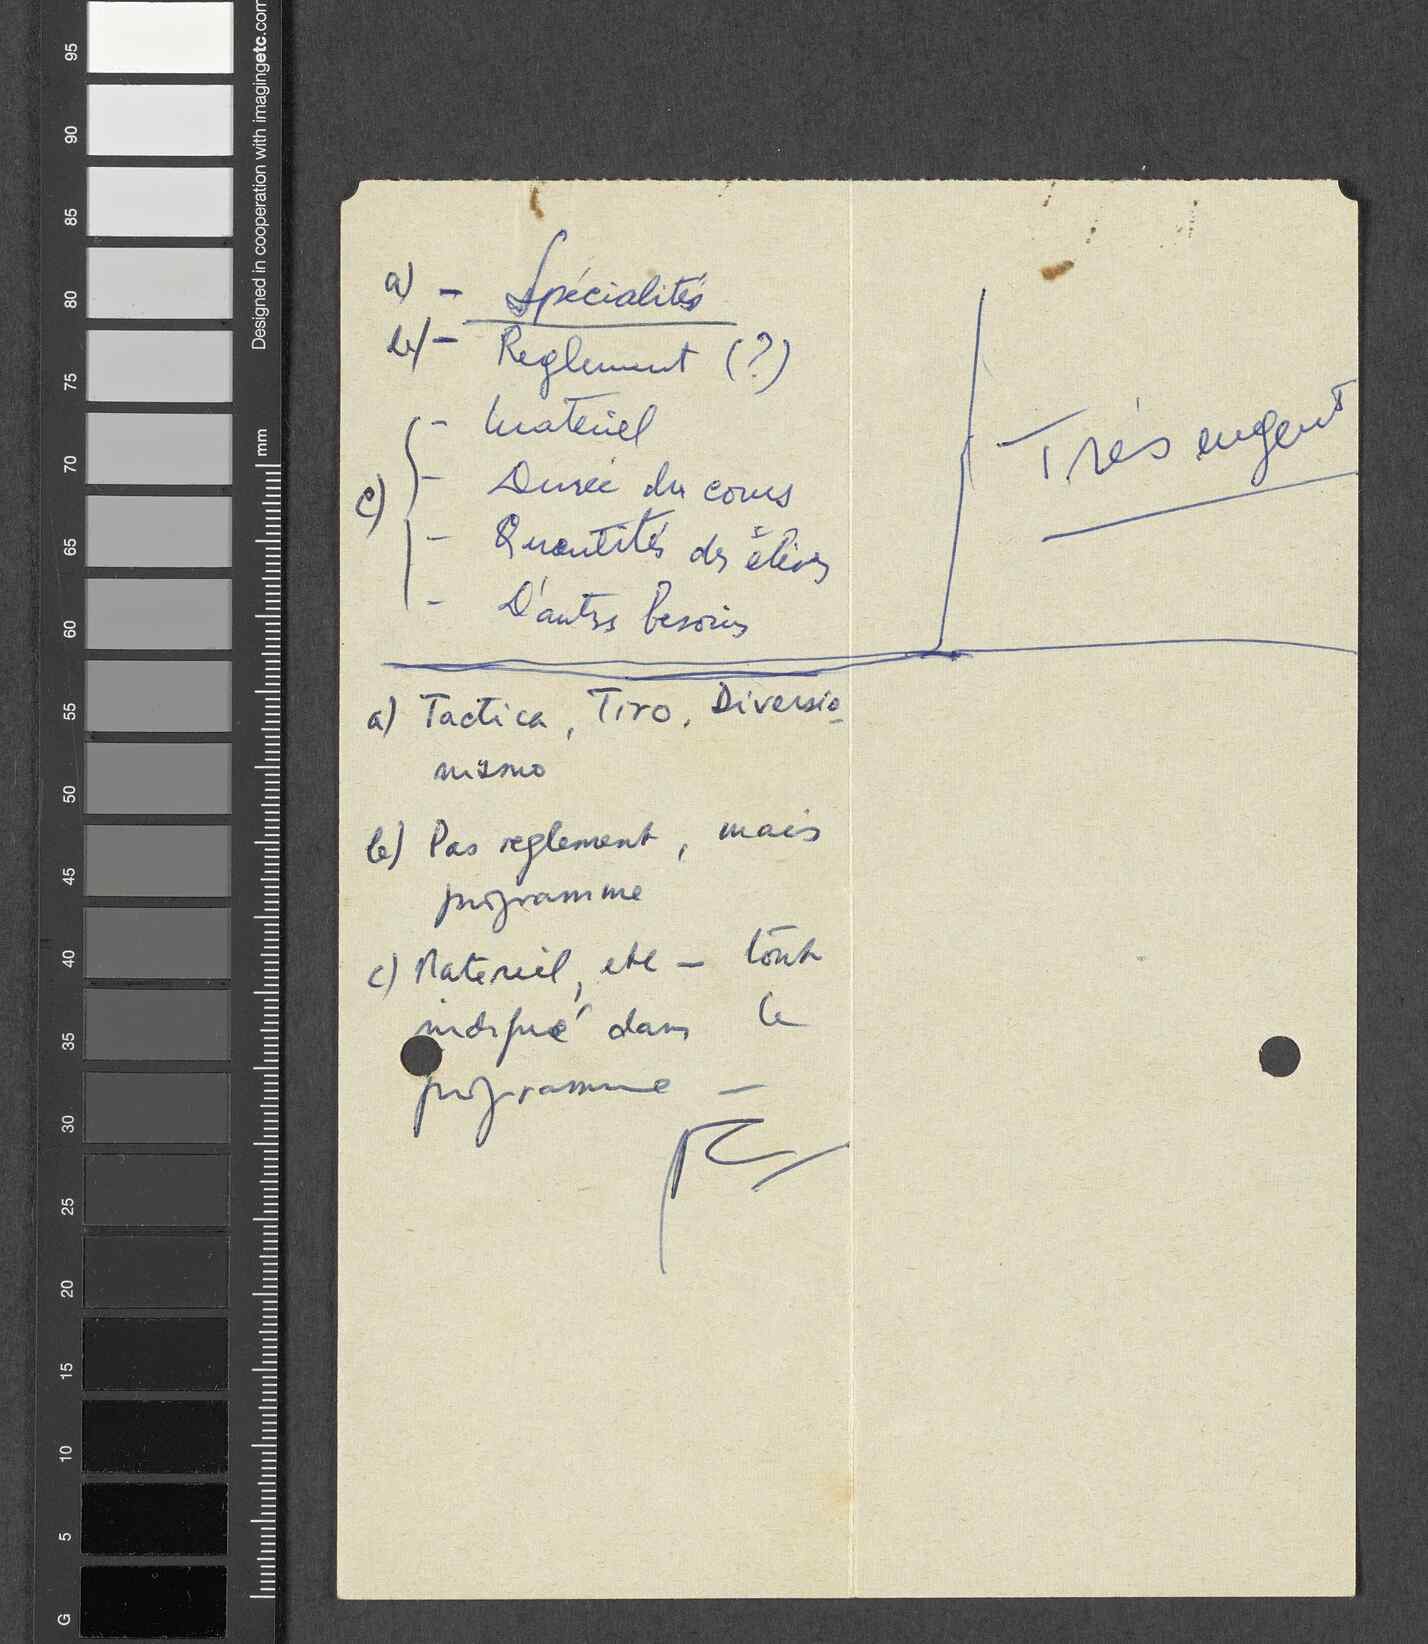 a) - Spécialités
b) - Reglement (?)
- Materiel
c) - Durée du cours
- Quantités des élèves
- D'autres besoins
Très urgent
a) Tactica, Tiro, Diversio-
nismo
b) Pas reglement, mais
programme
c) Materiel, etc - tout
indiqué dans le
programme -
95
90
85
80
75
70
65
60
55
50
45
40
35
30
25
20
15
10
5
G
mm
Designed in cooperation with imagingetc.com